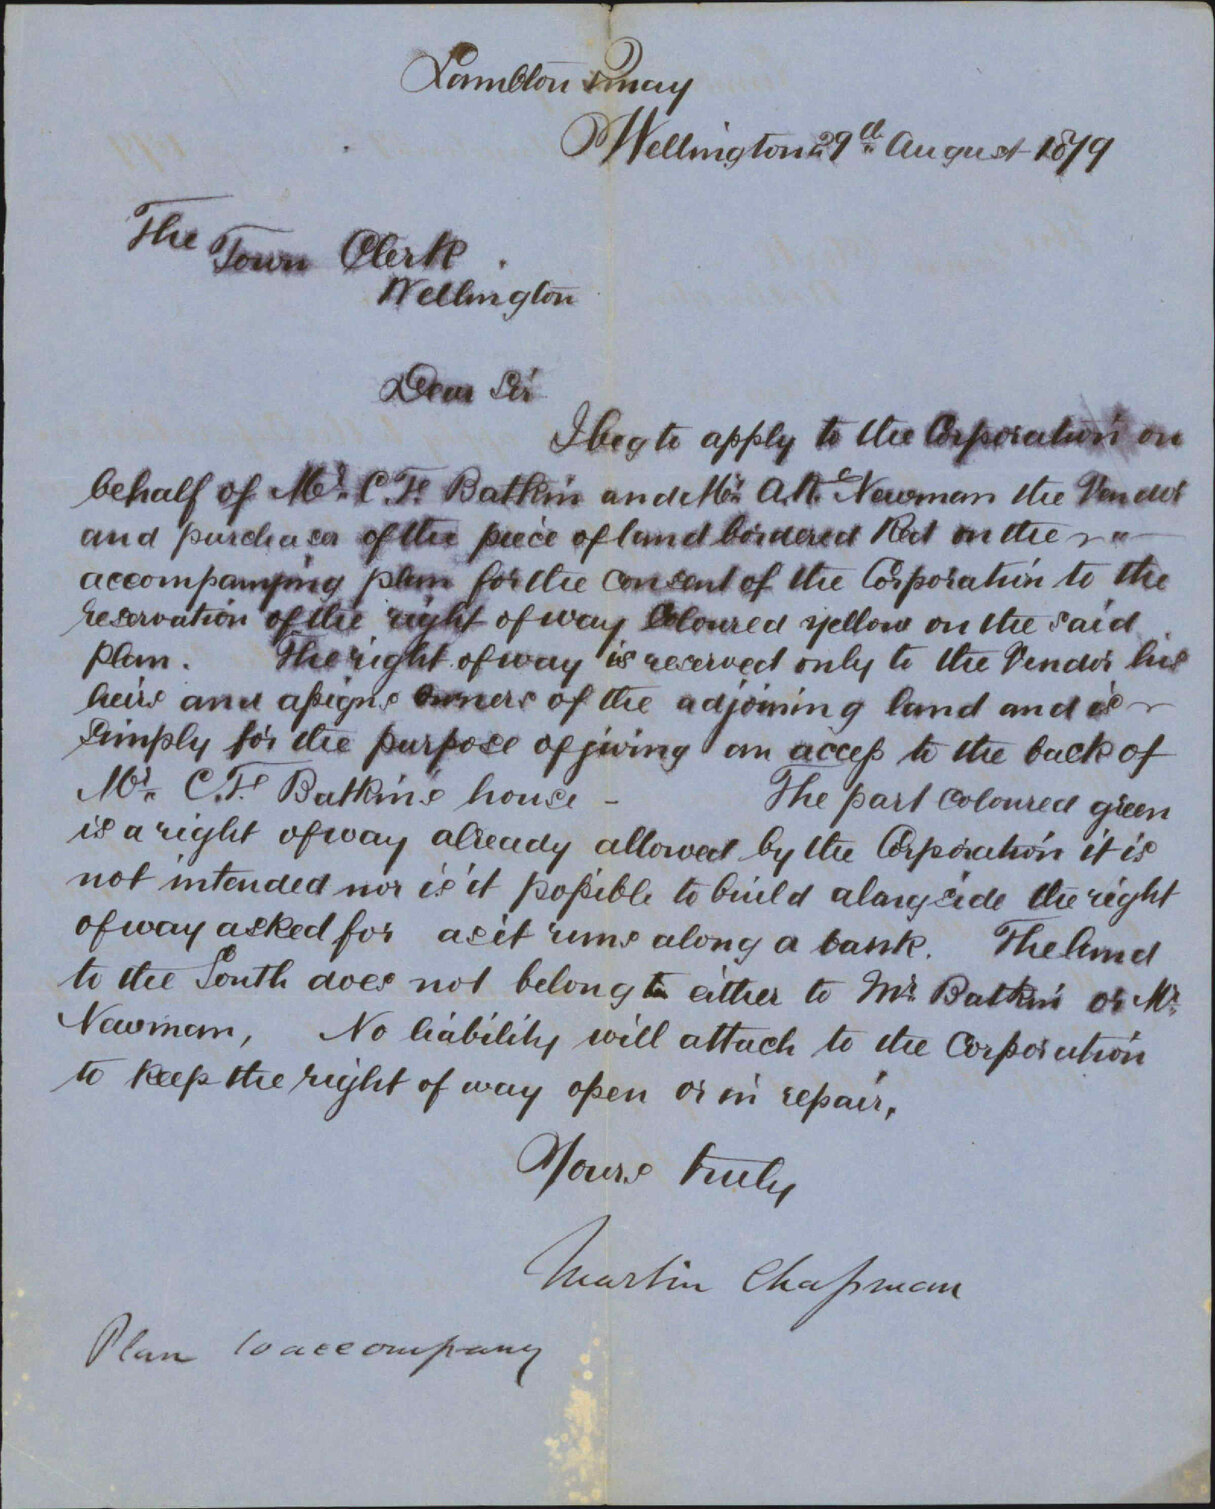 Lambton Quay
Wellington 29th August 1879
The Town Clerk
Wellington
Dear Sir
I beg to apply to the Corporation on
behalf of Mr. C. F. Batkin and Mr. A. K. Newman the Vendor
and purchaser of the piece of land bordered Red on the
accompanying plan for the consent of the Corporation to the
reservation of the right of way Coloured yellow on the said
plan. The right of way is reserved only to the Vendor his
heirs and assigns owners of the adjoining land and is
simply for the purpose of giving an access to the back of
Mr. C. F. Batkin's house – The part coloured green
is a right of way already allowed by the Corporation it is
not intended nor is it possible to build alongside the right
of way asked for as it runs along a bank. The land
to the South does not belong to either to Mr Batkin or Mr.
Newman, No liability will attach to the Corporation
to keep the right of way open or in repair,
Yours truly
Martin Chapman
Plan to accompany